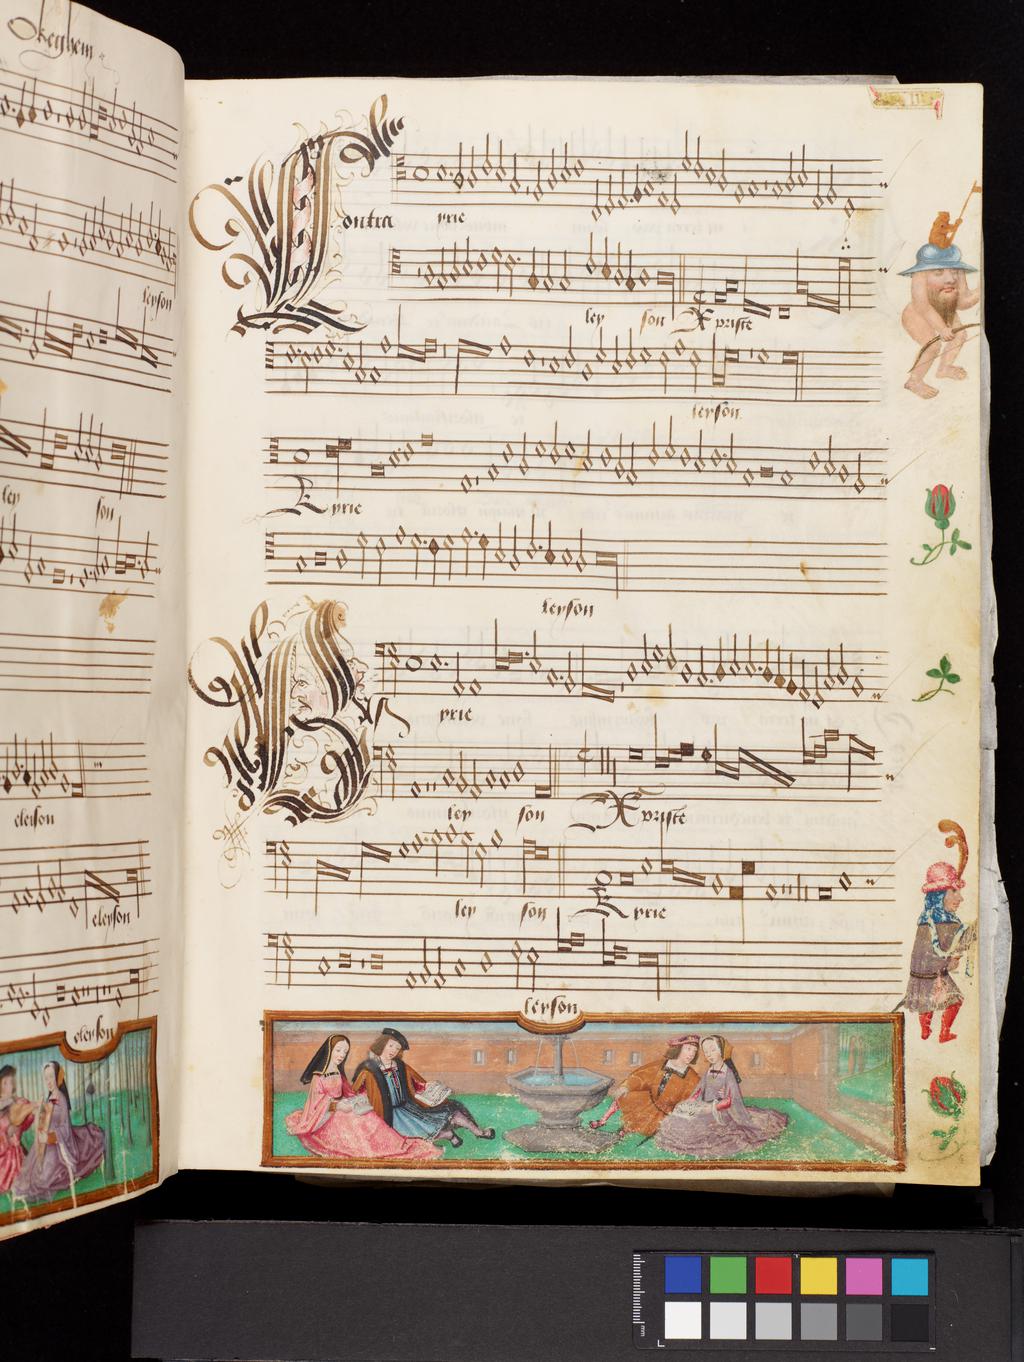 Okeghem
leyson
ley son
eleison
eleyson
eleyson
Contra yrie
ley son Xpriste
leyson
Kyrie
leyson
yrie
ley son Xpriste
ley son Kyrie
leyson
mm